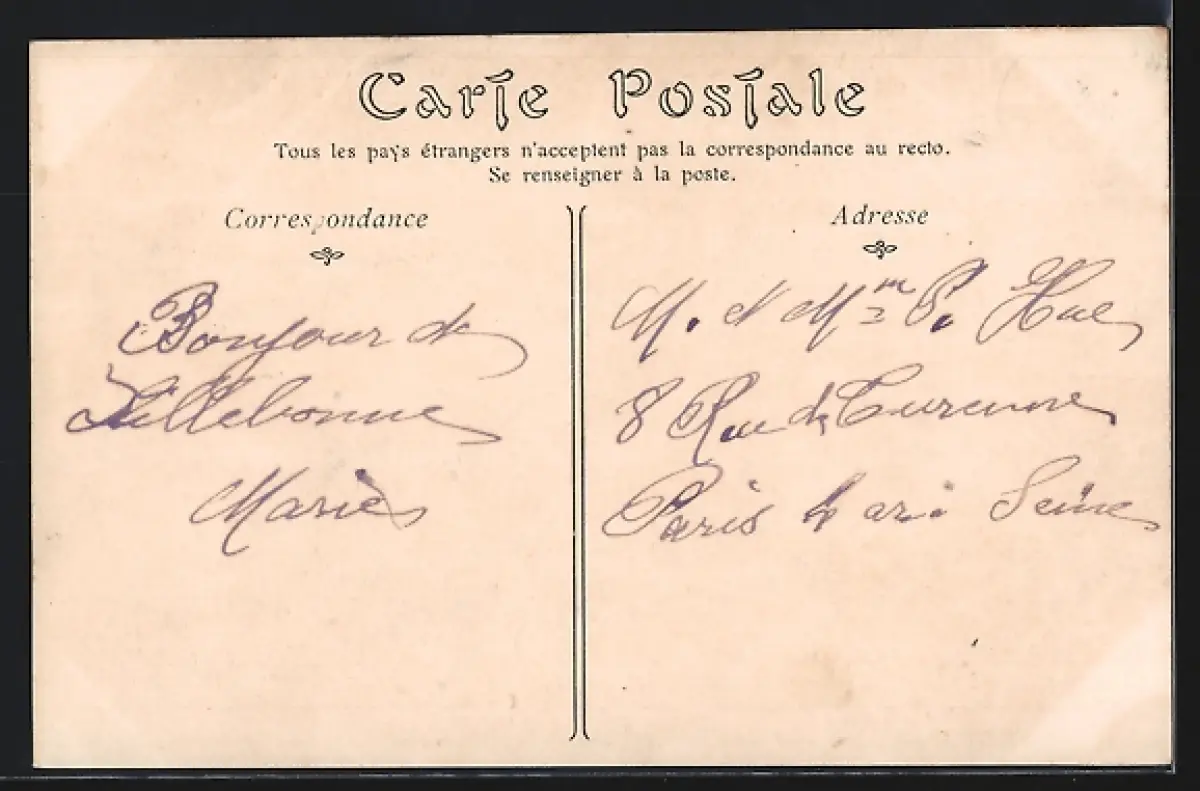 Carte Postale
Tous les pays étrangers n'acceptent pas la correspondance au recto.
Se renseigner à la poste.
Correspondance
Adresse
Bonjour de
Lillebonne
Marie
M. et Mme P. Hue
8 Rue de Turenne
Paris 4 ar. Seine